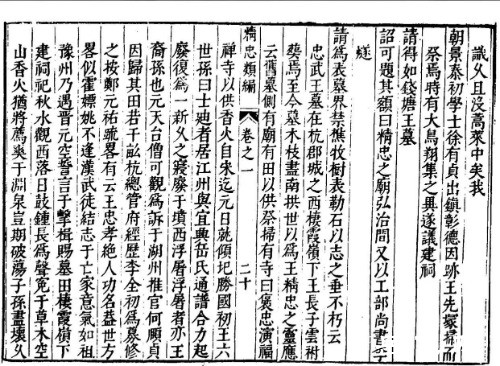 識久且没蒿萊中矣我
朝景泰初學士徐有貞出鎮彰德因跡王先塚掃而
祭焉時有大鳥翔集之異遂議建祠
詔可題其額曰精忠之廟弘治間又以工部尚書
請得如錢塘王墓
請為表墓界禁樵牧樹表勒石以志之垂不朽云
忠武王墓在杭郡城之西棲霞嶺下王長子雲祔
葬焉至今墓木枝盡南拱世以為王精忠之靈應
云舊墓側有廟有田以供祭掃有寺曰褒忠演福
精忠類編 卷之一 二十
禪寺以供香火自宋迄元日就傾圮勝國初王六
世孫曰士廸者居江州與宜興岳氏通譜合力起
廢復為一新久之寢廢于墳西浮屠浮屠者亦王
裔孫也元天台僧可觀為訴于湖州推官何頤貞
因歸其田若干訟杭總管府經歷李全初為墓修
之按鄭元祐疏畧有云王忠孝絶人功名益世方
畧似霍嫖姚不逢漢武徒結志于亡家意氣如祖
豫州乃遇晉元空誓言于擊楫賜墓田棲霞嶺下
建祠祀秋水觀西落日鼓鐘長為聲寃于草木空
山香火猶將薦爽于淵泉豈期破蕩子孫盡壞久